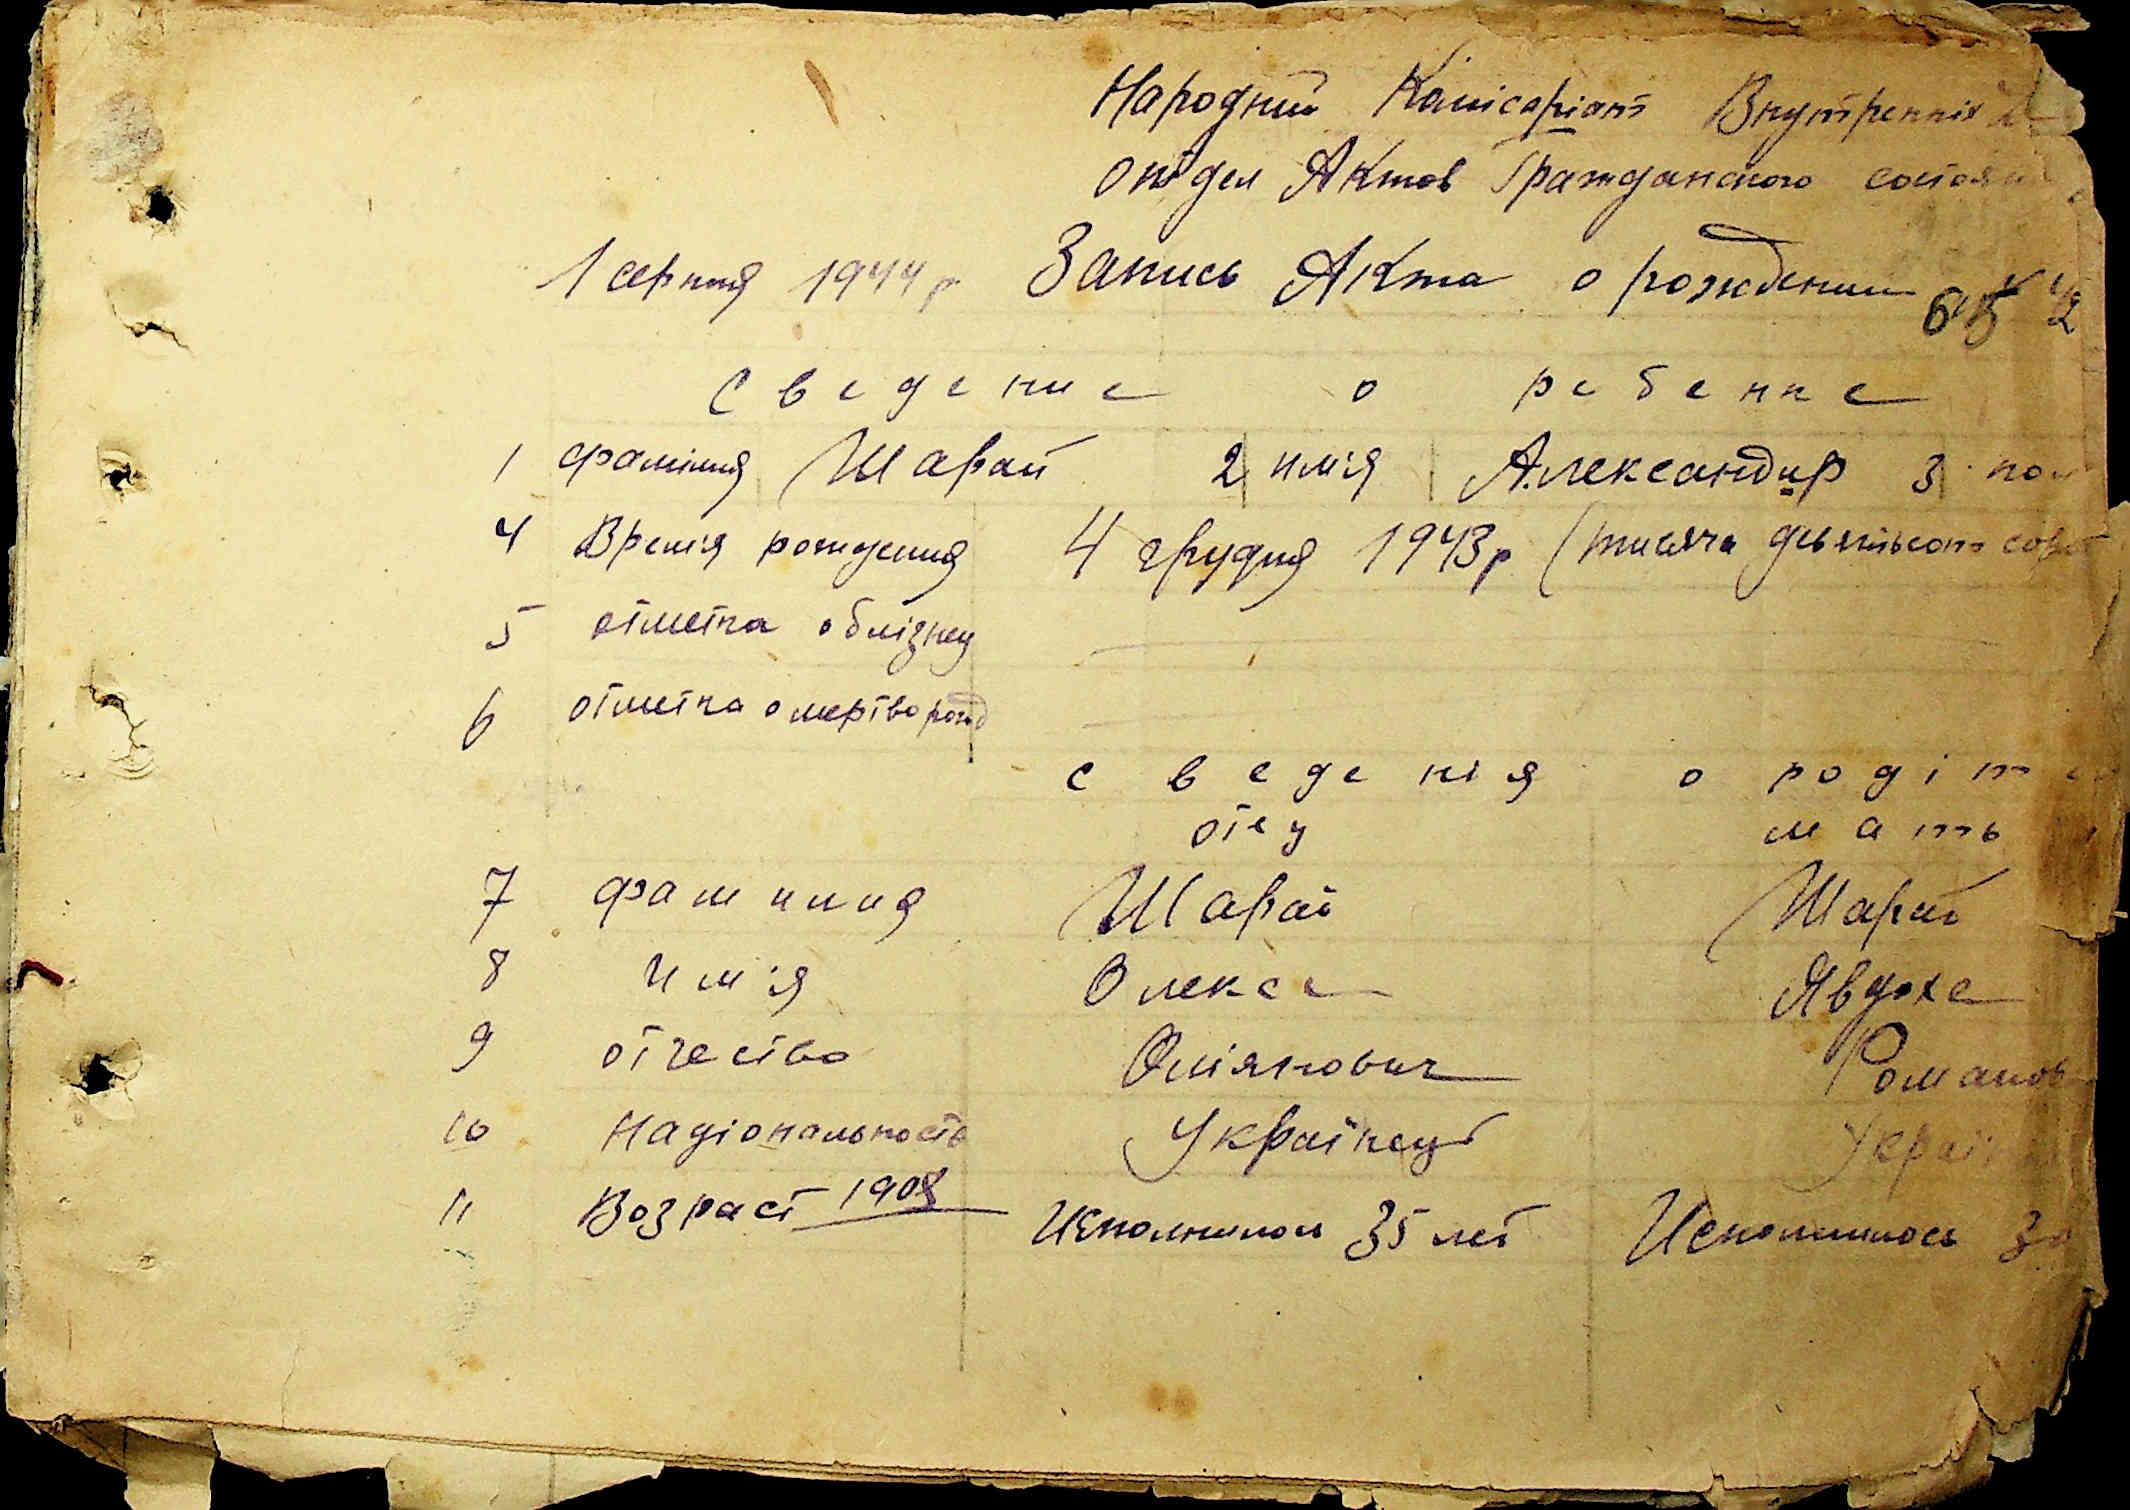 Народний Комісаріат Внутренніх
Отдел Актов Гражданского состоян
1 серпня 1944 р Запись Акта о рождении
Сведение о ребенке
1 фамілия Шарай 2 имія Александир 3 пол
4 Времія рождения 4 грудня 1943 р (тисяча девятьсот сорок
5 отметка о блізнец
6 отметка о мертворожд
сведенія о родіт
отец мать
7 фамилия Шарай Шарай
8 Имія Олекса Явдоха
9 отчество Омілянович Романов
10 Національность Українец Україн
11 Возраст 1908 Исполнилось 35 лет Исполнилось 3